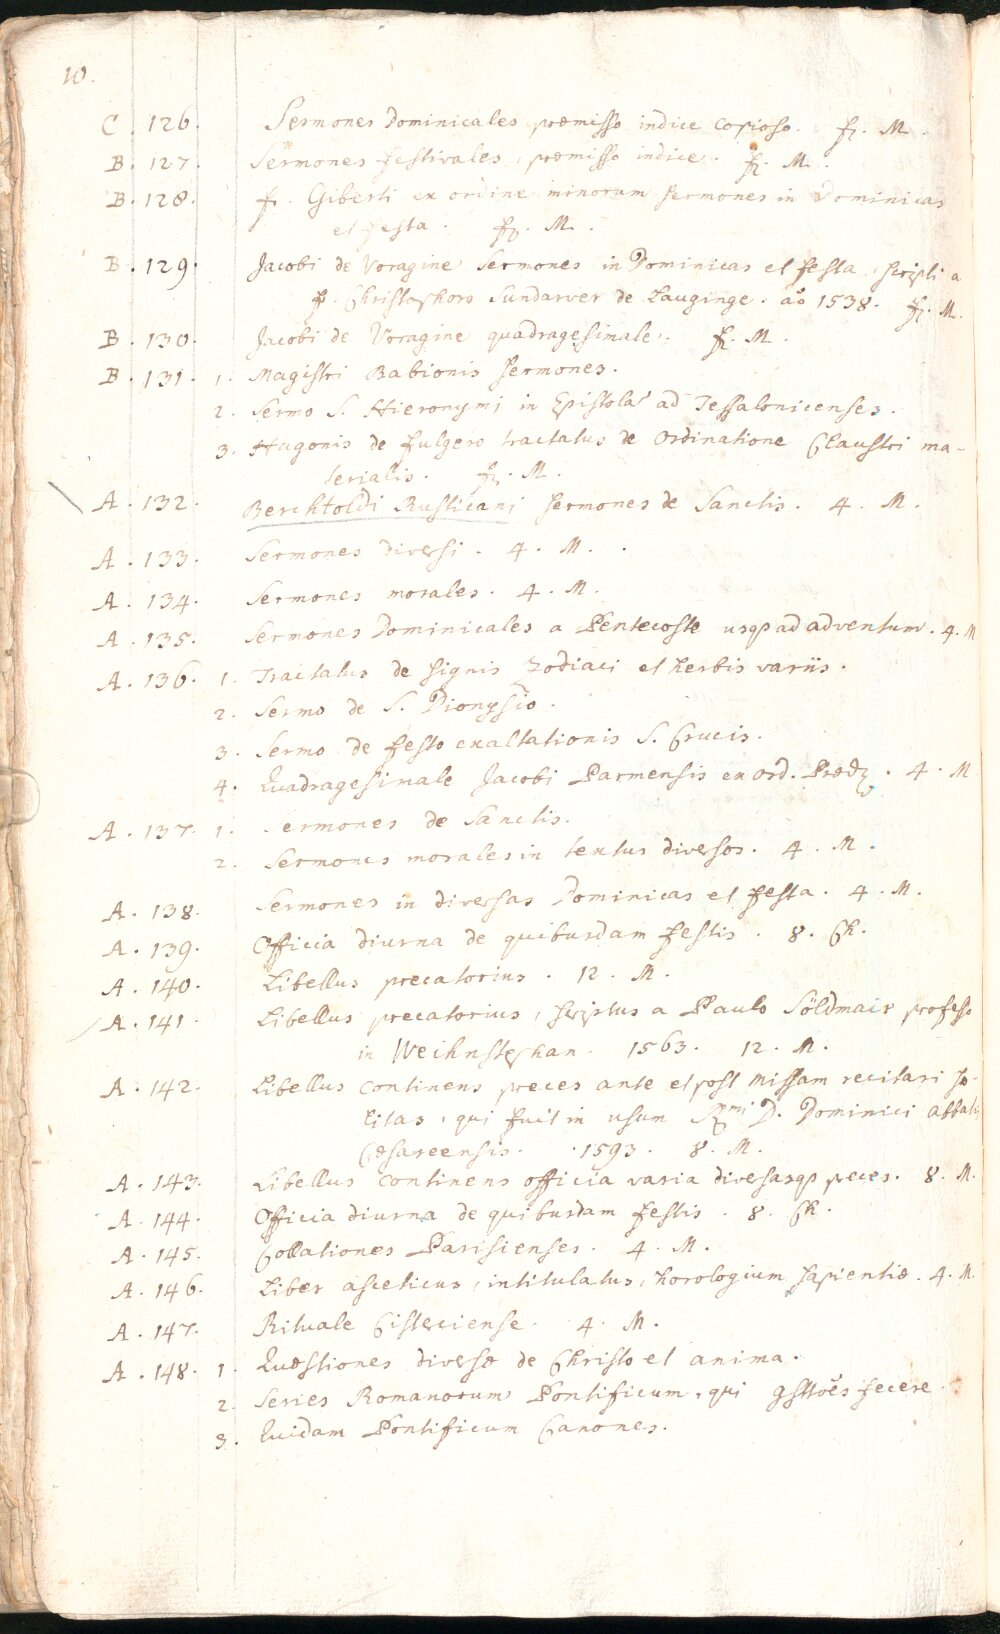 10.
C. 126. Sermones Dominicales præmisso indice copioso. f. M.
B. 127. Sermones festivales, præmisso indice. f. M.
B. 128. fr. Giberti ex ordine minorum sermones in Dominicas
et festa. f. M.
B. 129. Jacobi de Voragine Sermones in Dominicas et festa, scripti a
Christophoro Sundarver de Lauginge. aō 1538. f. M.
B. 130. Jacobi de Voragine quadragesimale. f. M.
B. 131. 1. Magistri Babionis sermones.
2. Sermo S. Hieronymi in Epistolas ad Tessalonicenses.
3. Hugonis de fulgero tractatus de Ordinatione Claustri ma-
terialis. f. M.
A. 132. Berchtoldi Rusticani sermones de Sanctis. 4. M.
A. 133. Sermones diversi. 4. M.
A. 134. Sermones morales. 4. M.
A. 135. Sermones Dominicales a Pentecoste usqȝ ad adventum. 4. M
A. 136. 1. Tractatus de signis Zodiaci et herbis variis.
2. Sermo de S. Dionysio.
3. Sermo de festo exaltationis S. Crucis.
4. Quadragesimale Jacobi Parmensis ex ord. Præd. 4. M
A. 137. 1. Sermones de Sanctis.
2. Sermones morales in textus diversos. 4. M.
A. 138. Sermones in diversas Dominicas et festa. 4. M.
A. 139. Officia diurna de quibusdam festis. 8. Ch.
A. 140. Libellus precatorius. 12. M.
A. 141. Libellus precatorius, scriptus a Paulo Söldmair professo
in Weihnstephan. 1563. 12. M.
A. 142. Libellus continens preces ante et post missam recitari so-
litas, qui fuit in usum Rmi D. Dominici abbatis
Cæsareensis. 1593. 8. M.
A. 143. Libellus continens officia varia diversasqȝ preces. 8. M.
A. 144. Officia diurna de quibusdam festis. 8. Ch.
A. 145. Collationes Parisienses. 4. M.
A. 146. Liber asceticus, intitulatus, horologium sapientiæ. 4. M.
A. 147. Rituale Cisterciense. 4. M.
A. 148. 1. Quæstiones diversæ de Christo et anima.
2. Series Romanorum Pontificum, qui fecere.
3. Quidam Pontificum Canones.